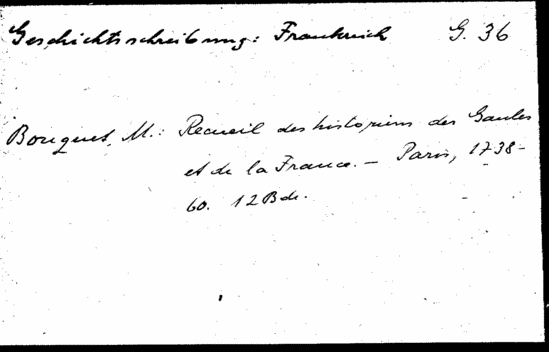 Geschichtsschreibung: Frankreich G. 36
Bouquet, M.: Recueil des historiens des Gaules
et de la France. — Paris, 1738-
60. 12 Bde.